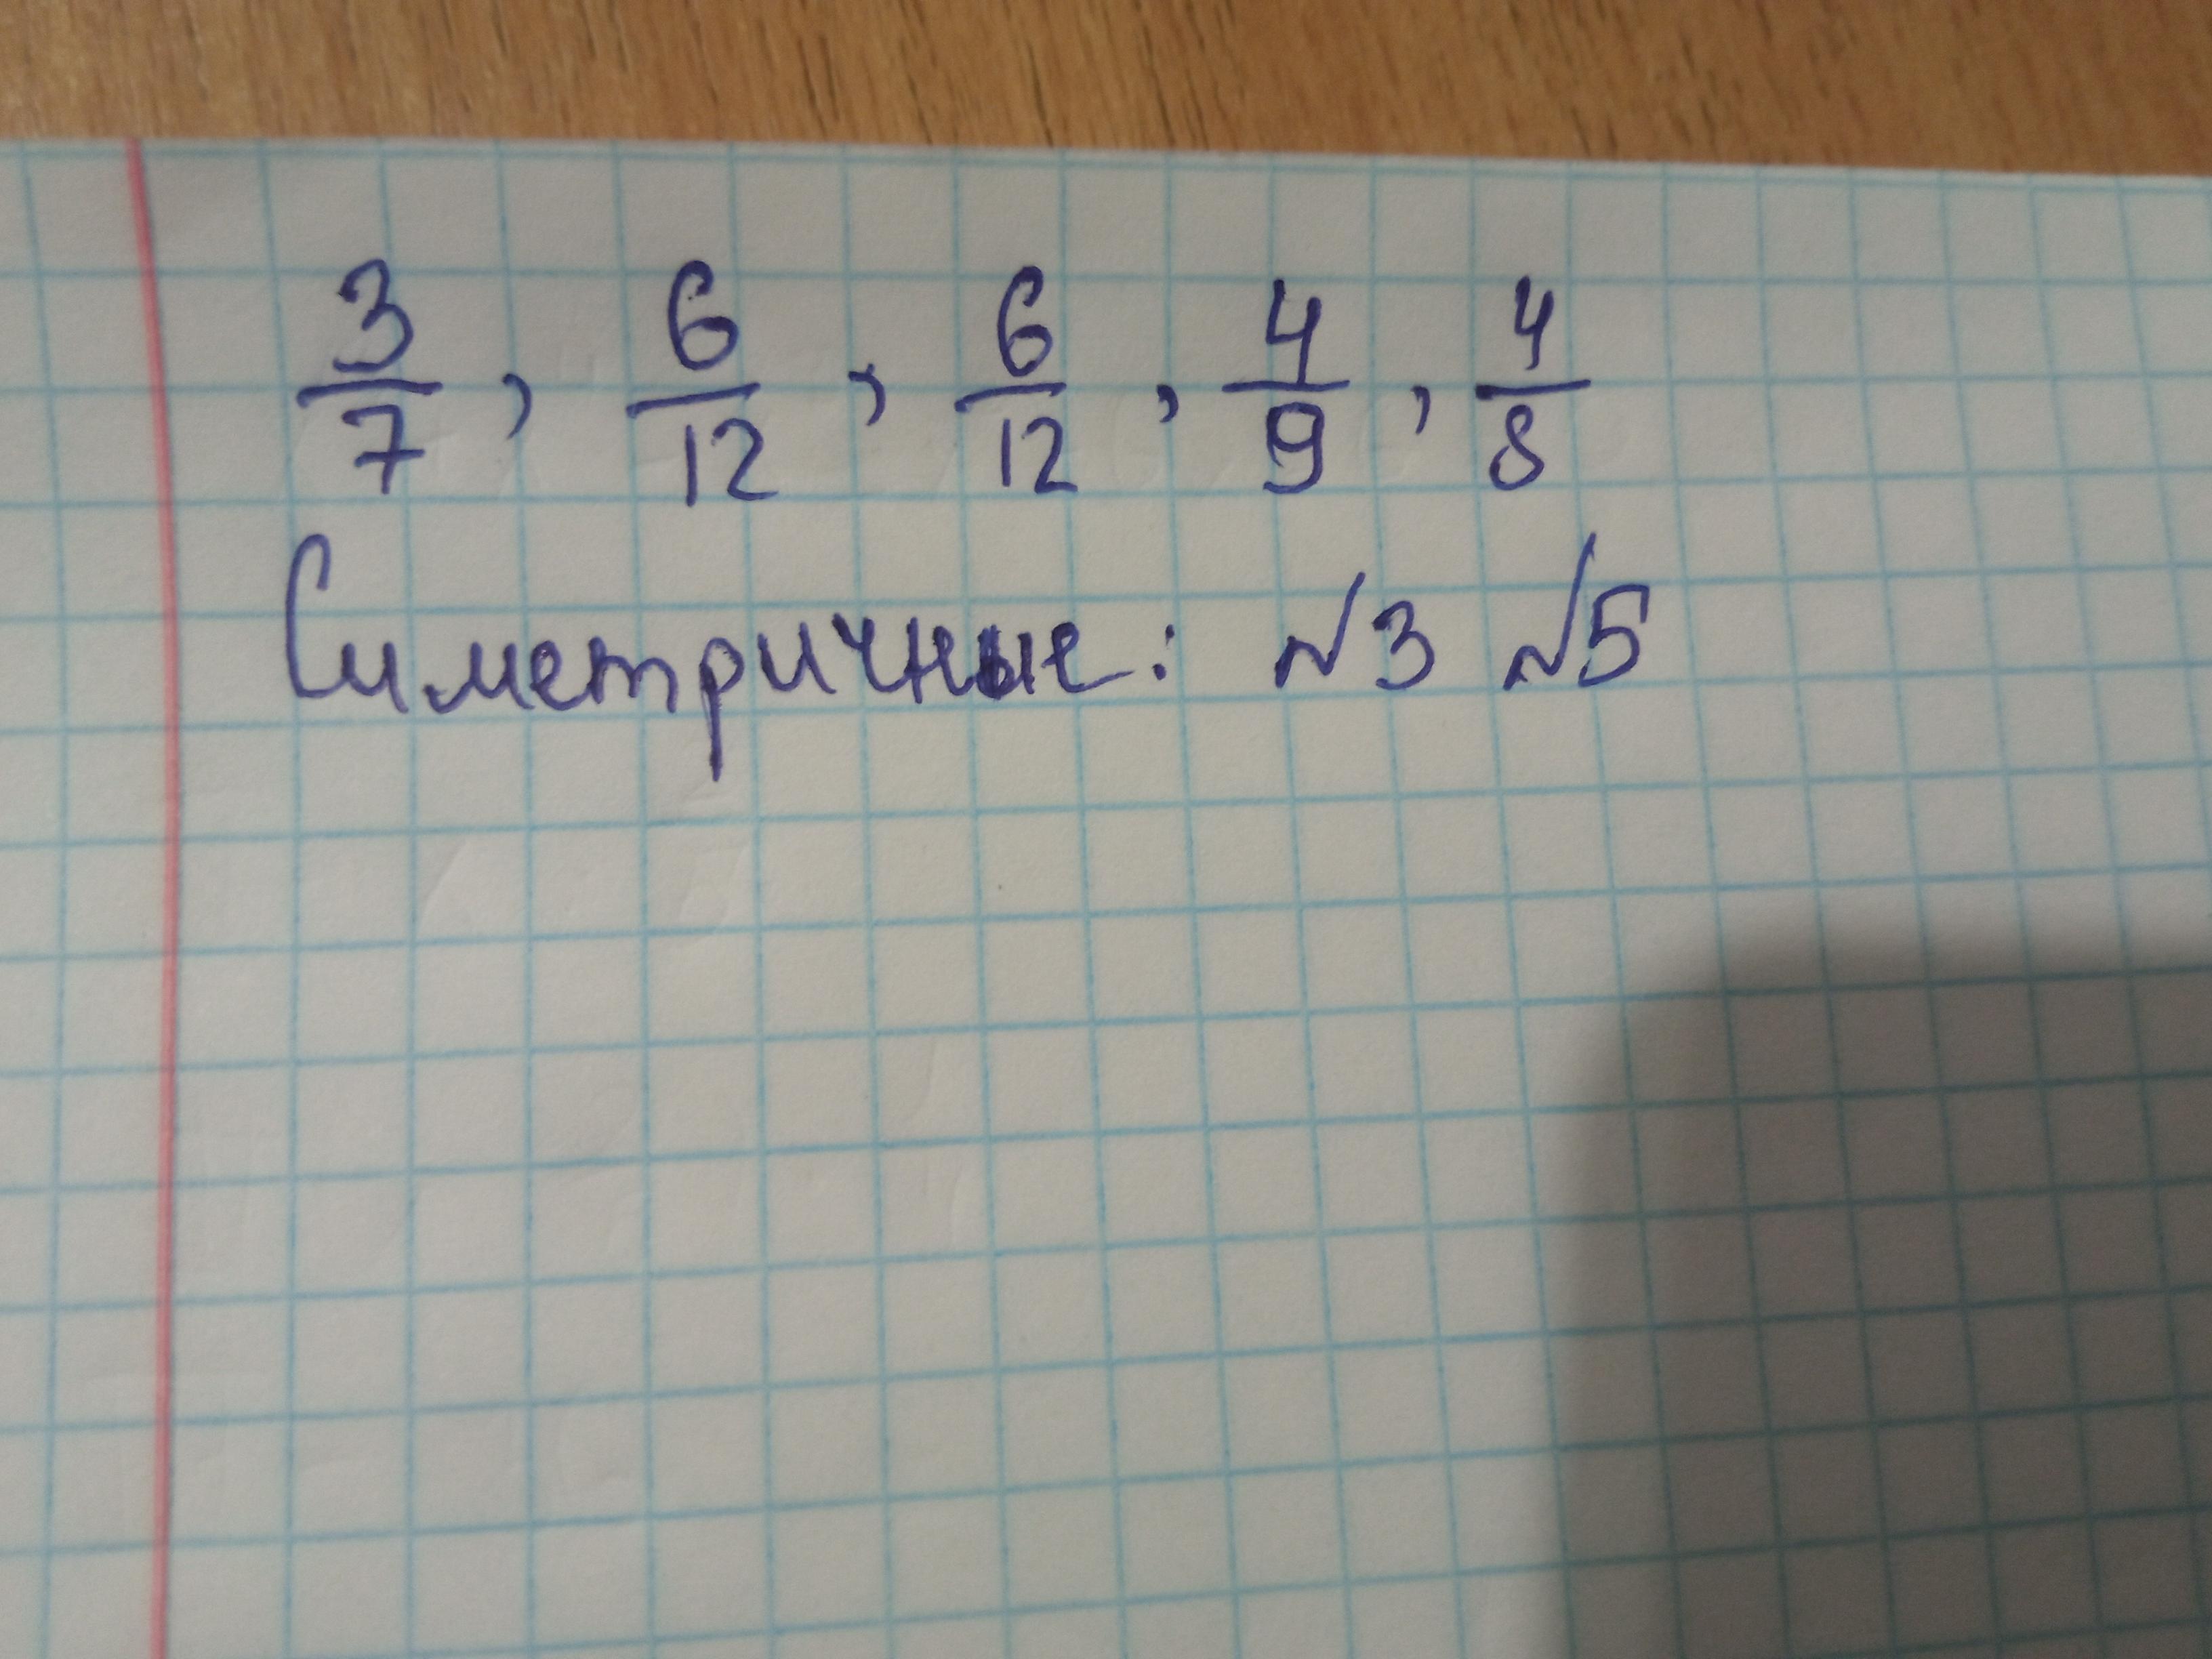 3/7, 6/12, 6/12, 4/9, 4/8
Симетричные: №3 №5